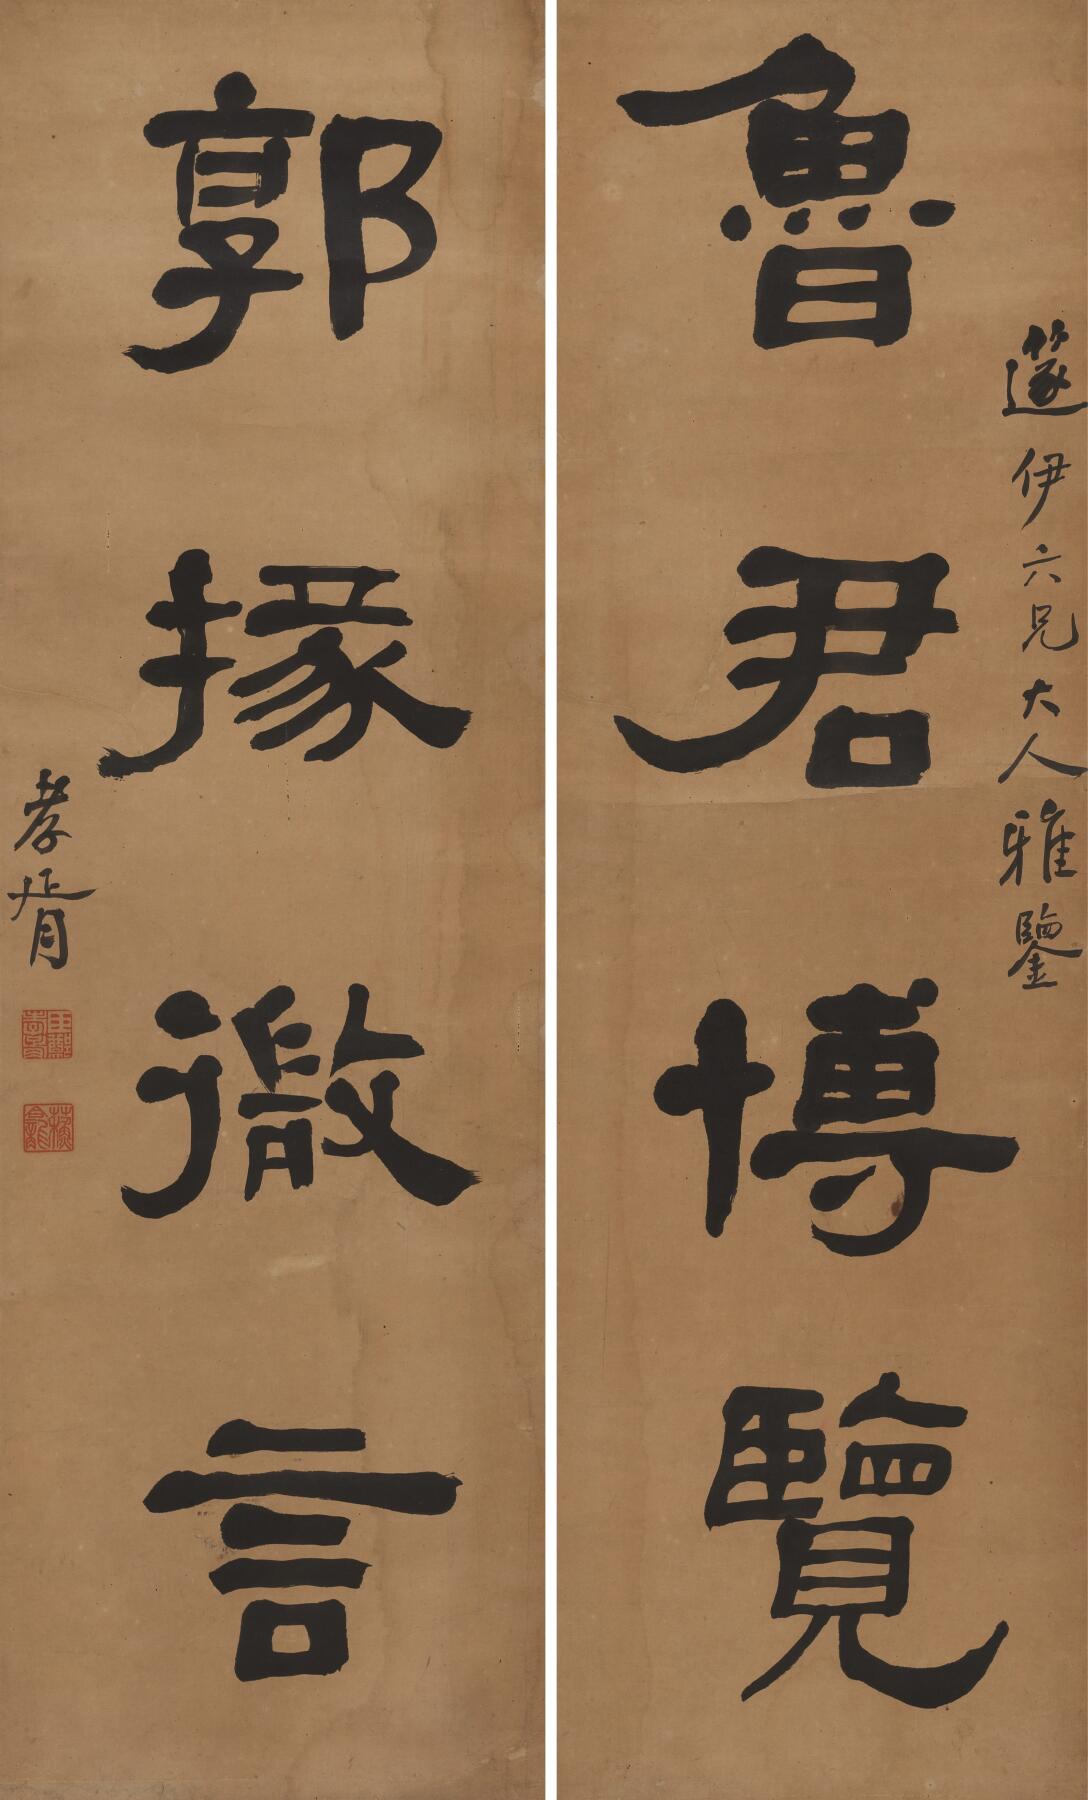 魯君博覽
邃伊六兄大人雅鑒
郭掾微言
孝胥